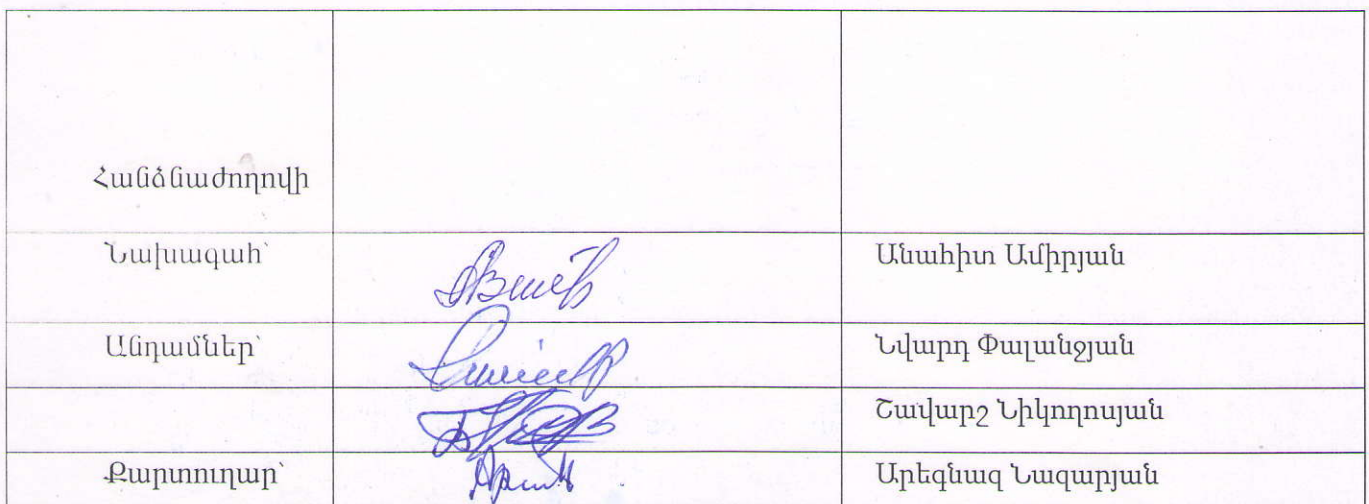 Հանձնաժողովի
Նախագահ՝ Անահիտ Ամիրյան
Անդամներ՝ Նվարդ Փալանջյան
Շավարշ Նիկողոսյան
Քարտուղար՝ Արեգնազ Նազարյան